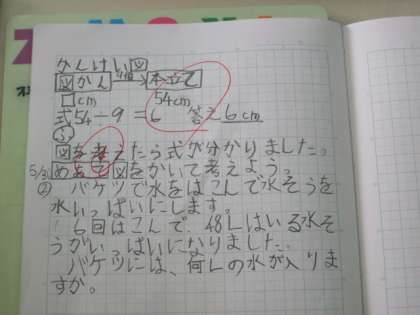 かんけい図
図かん 9倍 本立て
□cm 54cm
式54÷9=6 答え6cm
ふ
図を考えたら式が分かりました。
めあて図をかいて考えよう。
5/3
② バケツで水をはこんで水そうを
水いっぱいにします。
6回はこんで、48Lはいる水そ
うがいっぱいになりました。
バケツには、何Lの水が入りま
すか。